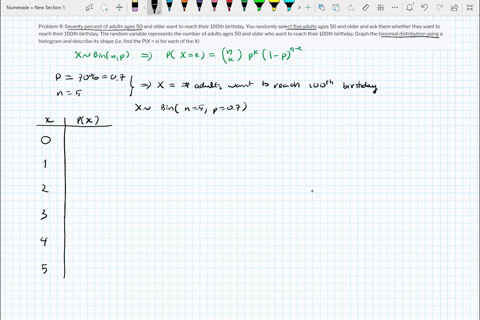 Numerade » New Section 1
Problem 9: Seventy percent of adults ages 50 and older want to reach their 100th birthday. You randomly select five adults ages 50 and older and ask them whether they want to
reach their 100th birthday. The random variable represents the number of adults ages 50 and older who want to reach their 100th birthday. Graph the binomial distribution using a
histogram and describe its shape (i.e. find the P(X = x) for each of the X)
X ~ Bin(n, p) ⟹ P(X=k) = (n k) p^k (1-p)^n-k
P = 70% = 0.7
n = 5
⟹ X = # adults want to reach 100th birthday
X ~ Bin(n=5, p=0.7)
x P(x)
0
1
2
3
4
5